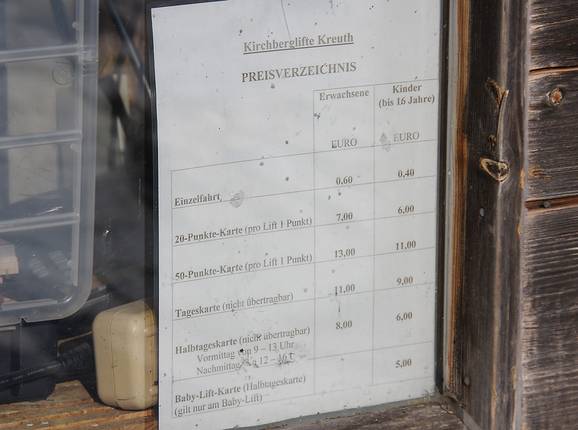 Kirchberglifte Kreuth
PREISVERZEICHNIS
Erwachsene Kinder
(bis 16 Jahre)
EURO EURO
Einzelfahrt, 0.60 0,40
20-Punkte-Karte (pro Lift 1 Punkt) 7,00 6,00
50-Punkte-Karte (pro Lift 1 Punkt) 13,00 11,00
Tageskarte (nicht übertragbar) 11,00 9,00
Halbtageskarte (nicht übertragbar) 8,00 6,00
Vormittag von 9 – 13 Uhr
Nachmittag 12 – 16
Baby-Lift-Karte (Halbtageskarte) 5,00
(gilt nur am Baby-Lift)